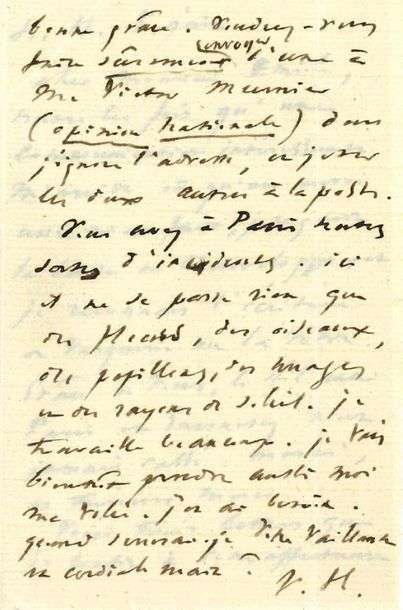 bonne grâce. Voudrez-vous
faire sûrement envoyer l'une à
Mr Victor Meunier
(opinion nationale) dont
j'ignore l'adresse, et jeter
les deux autres à la poste.
Vous avez à Paris toutes
sortes d'incidents. ici
il ne se passe rien que
des fleurs, des oiseaux,
des papillons, des nuages
et des rayons de soleil. je
travaille beaucoup. je vais
bientôt prendre aussi moi
ma volée. j'en ai besoin.
quand je
ma cordiale main.
V. H.